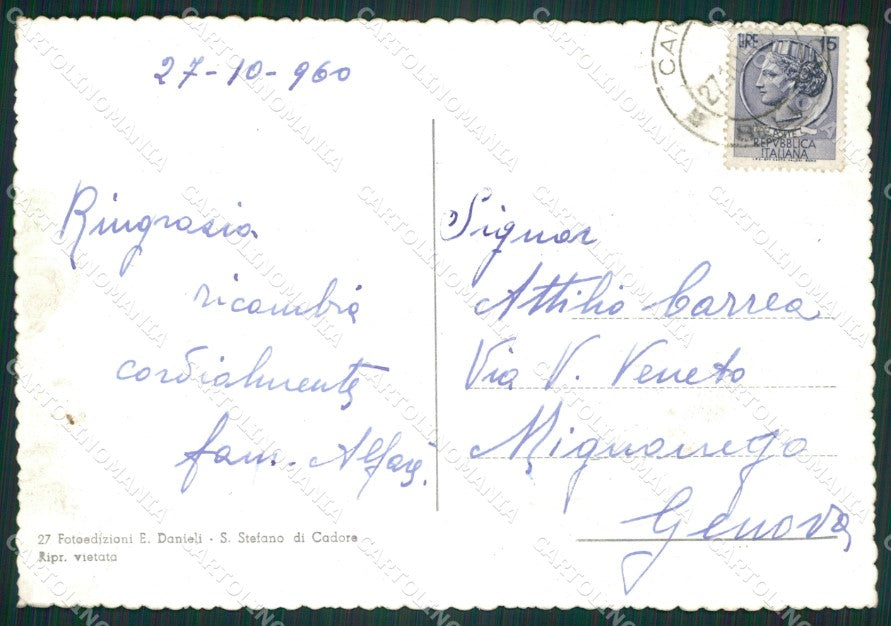 27-10-960
Ringrazia
ricambia
cordialmente
fam. Alfarè.
27 Fotoedizioni E. Danieli - S. Stefano di Cadore
Ripr. vietata
LIRE 15
REPVBBLICA
ITALIANA
Signor
Attilio Carrea
Via V. Veneto
Mignanego
Genova
CARTOLINOMANIA